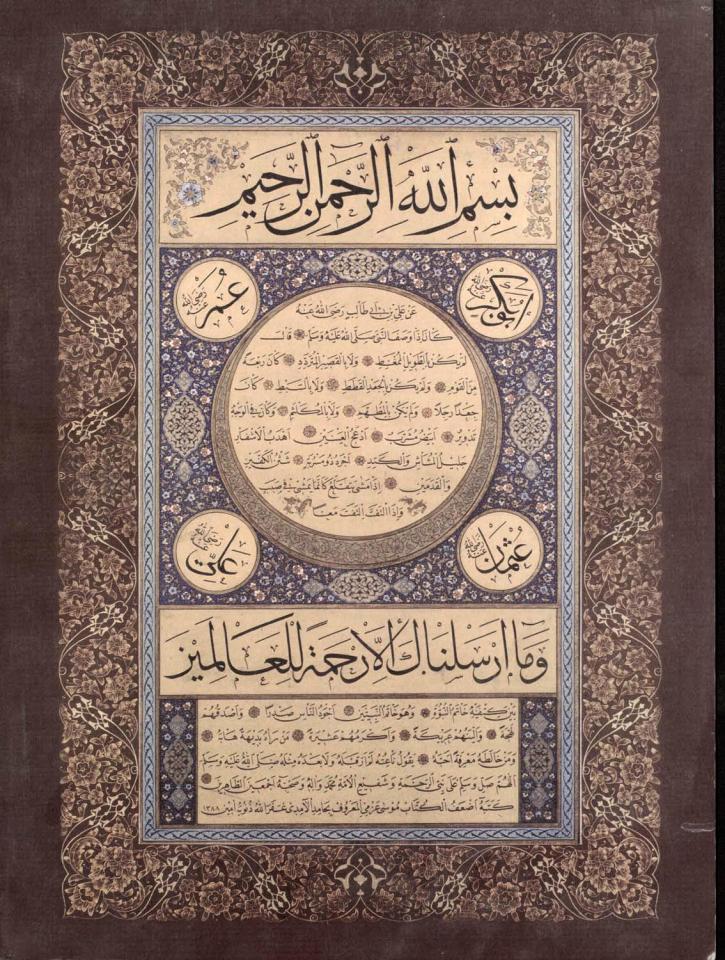 بسم الله الرحمن الرحيم
ابوبكر رضي الله عنه
عمر رضي الله عنه
عن علي بن ابي طالب رضي الله عنه
كان اذا وصف النبي صلى الله عليه وسلم قال
لم يكن بالطويل الممغط ولا بالقصير المتردد كان ربعة
من القوم ولم يكن بالجعد القطط ولا بالسبط كان
جعدا رجلا ولم يكن بالمطهم ولا بالمكلثم وكان في الوجه
تدوير ابيض مشرب ادعج العينين اهدب الاشفار
جليل المشاش والكتد اجرد ذو مسربة شثن الكفين
والقدمين اذا مشى يتقلع كانما يمشي في صبب
واذا التفت التفت معا
عثمان رضي الله عنه
علي رضي الله عنه
وما ارسلناك الا رحمة للعالمين
بين كتفيه خاتم النبوة وهو خاتم النبيين اجود الناس صدرا واصدقهم
لهجة والينهم عريكة واكرمهم عشيرة من راه بديهة هابه
ومن خالطه معرفة احبه يقول ناعته لم ار قبله ولا بعده مثله صلى الله عليه وسلم
اللهم صل وسلم على نبي الرحمة وشفيع الامة محمد واله وصحبه اجمعين الطاهرين
كتبه اضعف الكتاب موسى عزمي المعروف بحامد الآمدي غفر الله ذنوبه امين ١٣٨٨